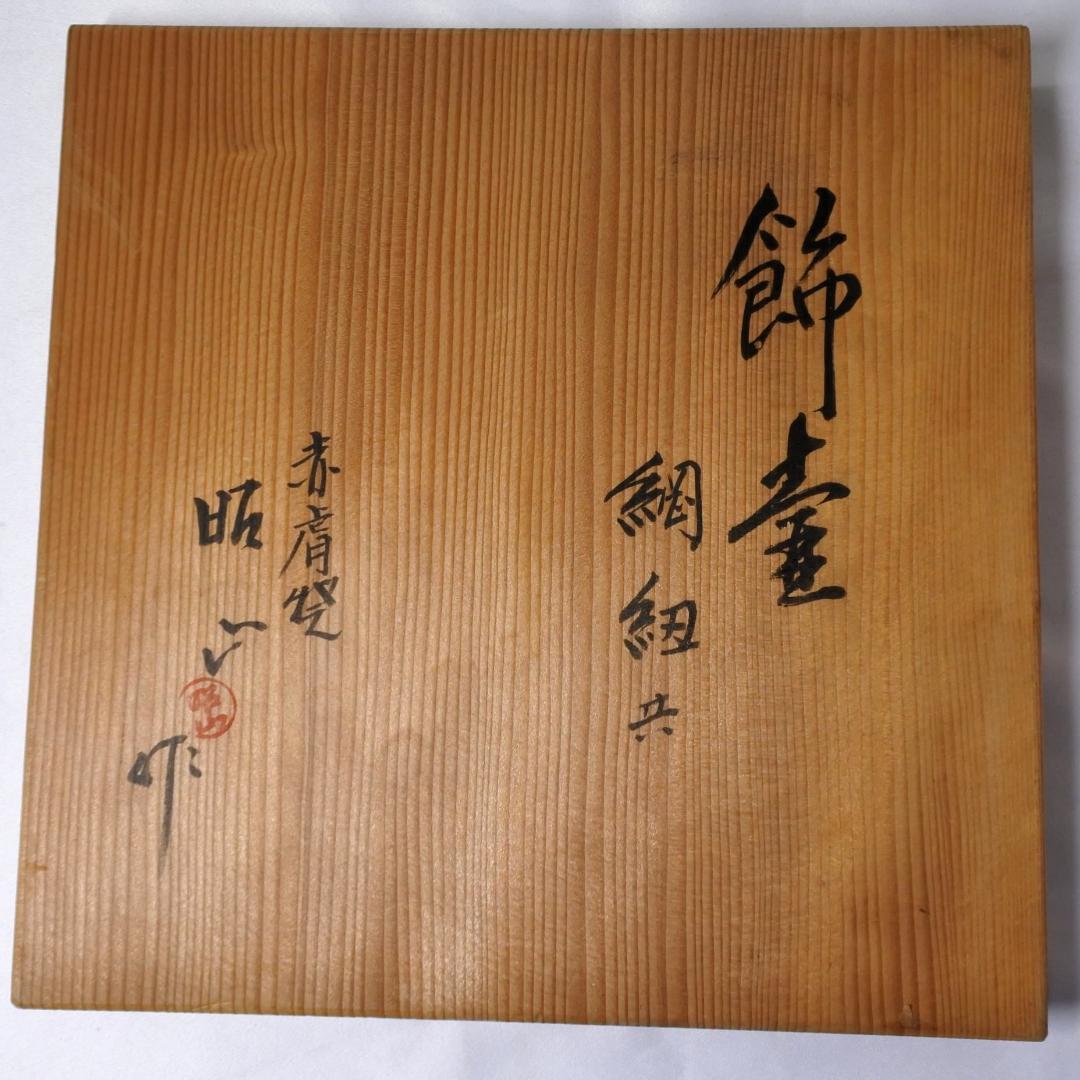 飾壷
網紐共
赤膚焼
昭山作